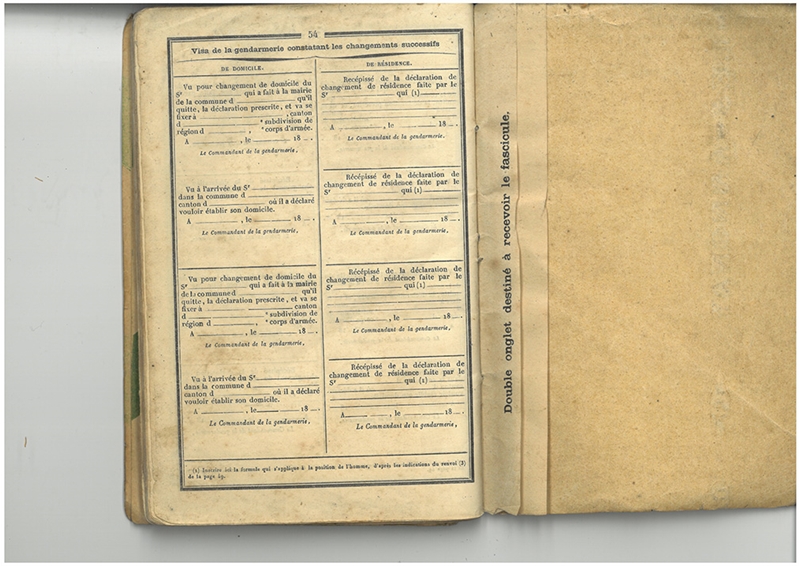 54
Visa de la gendarmerie constatant les changements successifs
DE DOMICILE.
Vu pour changement de domicile du
Sr ____ qui a fait à la mairie
de la commune d ____ qu'il
quitte, la déclaration prescrite, et va se
fixer à ____, canton
d ____ e subdivision de
région d ____, e corps d'armée.
A ____, le ____ 18__.
Le Commandant de la gendarmerie,
Vu à l'arrivée du Sr ____
dans la commune d ____
canton d ____ où il a déclaré
vouloir établir son domicile.
A ____, le ____ 18__.
Le Commandant de la gendarmerie,
Vu pour changement de domicile du
Sr ____ qui a fait à la mairie
de la commune d ____ qu'il
quitte, la déclaration prescrite, et va se
fixer à ____ canton
d ____ e subdivision de
région d ____, e corps d'armée.
A ____, le ____ 18__.
Le Commandant de la gendarmerie,
Vu à l'arrivée du Sr ____
dans la commune d ____
canton d ____ où il a déclaré
vouloir établir son domicile.
A ____, le ____ 18__.
Le Commandant de la gendarmerie,
DE RÉSIDENCE.
Récépissé de la déclaration de
changement de résidence faite par le
Sr ____ qui (1) ____
A ____, le ____ 18__.
Le Commandant de la gendarmerie,
Récépissé de la déclaration de
changement de résidence faite par le
Sr ____ qui (1) ____
A ____, le ____ 18__.
Le Commandant de la gendarmerie,
Récépissé de la déclaration de
changement de résidence faite par le
Sr ____ qui (1) ____
A ____, le ____ 18__.
Le Commandant de la gendarmerie,
Récépissé de la déclaration de
changement de résidence faite par le
Sr ____ qui (1) ____
A ____, le ____ 18__.
Le Commandant de la gendarmerie,
(1) Inscrire ici la formule qui s'applique à la position de l'homme, d'après les indications du renvoi (3)
de la page
Double onglet destiné à recevoir le fascicule.